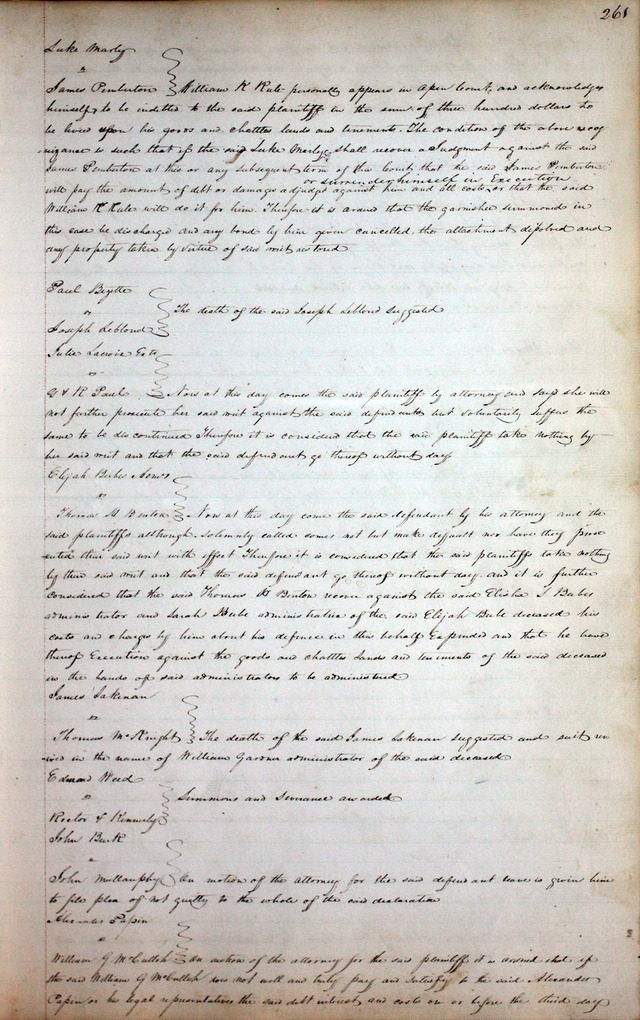 261
Luke Marly
"
James Pemberton William K Rule personally appears in open Court, and acknowledges
himself to be indetted to the said plaintiff in the sum of three hundred dollars to
be levied upon his goods and chattles lands and tenements. The condition of the above recog
nizance is such that if the said Luke Marly shall recover a Judgment against the said
James Pemberton at this or any subsequent term of this Court, that the said James Pemberton
or surrender himself in Execution
will pay the amount of debt or damages adjudged against him and all costs, or that the said
William K Rule will do it for him. Therefore it is ordered that the garnishee summoned in
this case be discharged and any bond by him given cancelled, the attachment desolved and
any property taken by virtue of said writ restored
Paul
" The death of the said Joseph Leblond suggested
Joseph Leblond
Julie Lacroix
"
G & R Paul Now at this day comes the said plaintiff by attorney and says she will
not further prosecute her said writ against the said defendants but voluntarily suffers the
same to be discontinued Therefore it is considered that the said plaintiff take nothing by
her said writ and that the said defendant go thereof without day
Elijah Bebee Admrs
"
Thomas H Benton Now at this day come the said defendant by his attorney and the
said plaintiffs although solemnly called comes not but make default nor have they prose
cuted their said writ with effect Therefore it is considered that the said plaintiffs take nothing
by their said writ and that the said defendant go thereof without day and it is further
considered that the said Thomas H Benton recover against the said Elisha Bebee
administrator and Sarah Bebe administratrix of the said Elijah Bebe deceased his
costs and charges by him about his defence in this behalf Expended and that he have
thereof Execution against the goods and chattles lands and tenements of the said deceased
in the hands of said administrators to be administered
James Lakenan
"
Thomas McKnight The death of the said James Lakenan suggested and suit re
vived in the name of William Gardner administrator of the said deceased
Edward Weed
" Summons and Severance awarded
Rector & Kennerly
John Burk
"
John Mullanphy On motion of the attorney for the said defendant leave is given him
to file plea of not guilty to the whole of the said declaration
Alexander Papin
"
William G McCulloh On motion of the attorney for the said plaintiff it is ordered that if
the said William G McCulloh does not well and truly pay and satisfy to the said Alexander
Papin or his legal representatives the said debt interest and costs on or before the third day